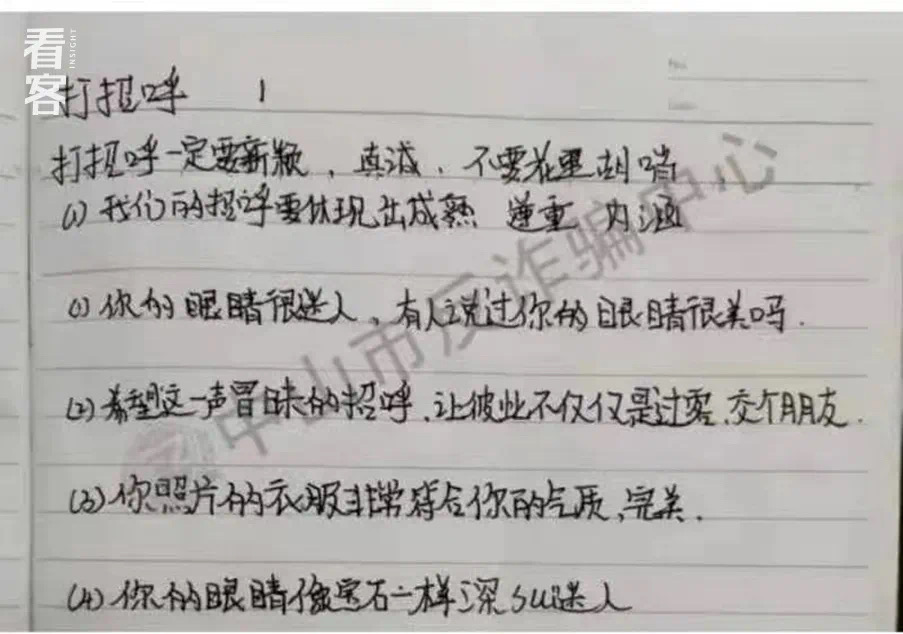 看客
INSIGHT
打招呼 1
打招呼一定要新颖，真诚，不要花里胡哨
(1) 我们的招呼要体现出成熟 稳重 内涵
(1) 你的眼睛很迷人，有人说过你的眼睛很美吗.
(2) 希望这一声冒昧的招呼，让彼此不仅仅是过客，交个朋友.
(3) 你照片的衣服非常符合你的气质，完美.
(4) 你的眼睛像宝石一样深su迷人
中山市反诈骗中心